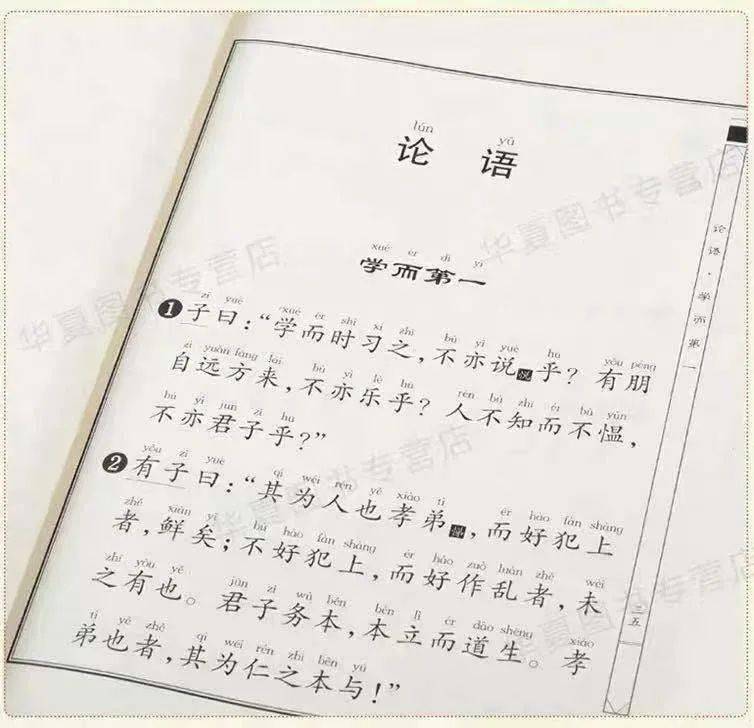 lún yǔ
论 语
xué ér dì yī
学而第一
zǐ yuē xué ér shí xí zhī bú yì yuè hū yǒu péng
❶子曰：“学而时习之，不亦说悦乎？有朋
zì yuǎn fāng lái bú yì lè hū rén bù zhī ér bú yùn
自远方来，不亦乐乎？人不知而不愠，
bú yì jūn zǐ hū
不亦君子乎？”
yǒu zǐ yuē qí wéi rén yě xiào tì ér hào fàn shàng
❷有子曰：“其为人也孝弟悌，而好犯上
zhě xiǎn yǐ bú hào fàn shàng ér hào zuò luàn zhě wèi
者，鲜矣；不好犯上，而好作乱者，未
zhī yǒu yě jūn zǐ wù běn běn lì ér dào shēng xiào
之有也。君子务本，本立而道生。孝
tì yě zhě qí wéi rén zhī běn yú
弟也者，其为仁之本与！”
论语·学而第一
二五
华夏图书专营店
华夏图书专营店
华夏图书专营店
华夏图书专营店